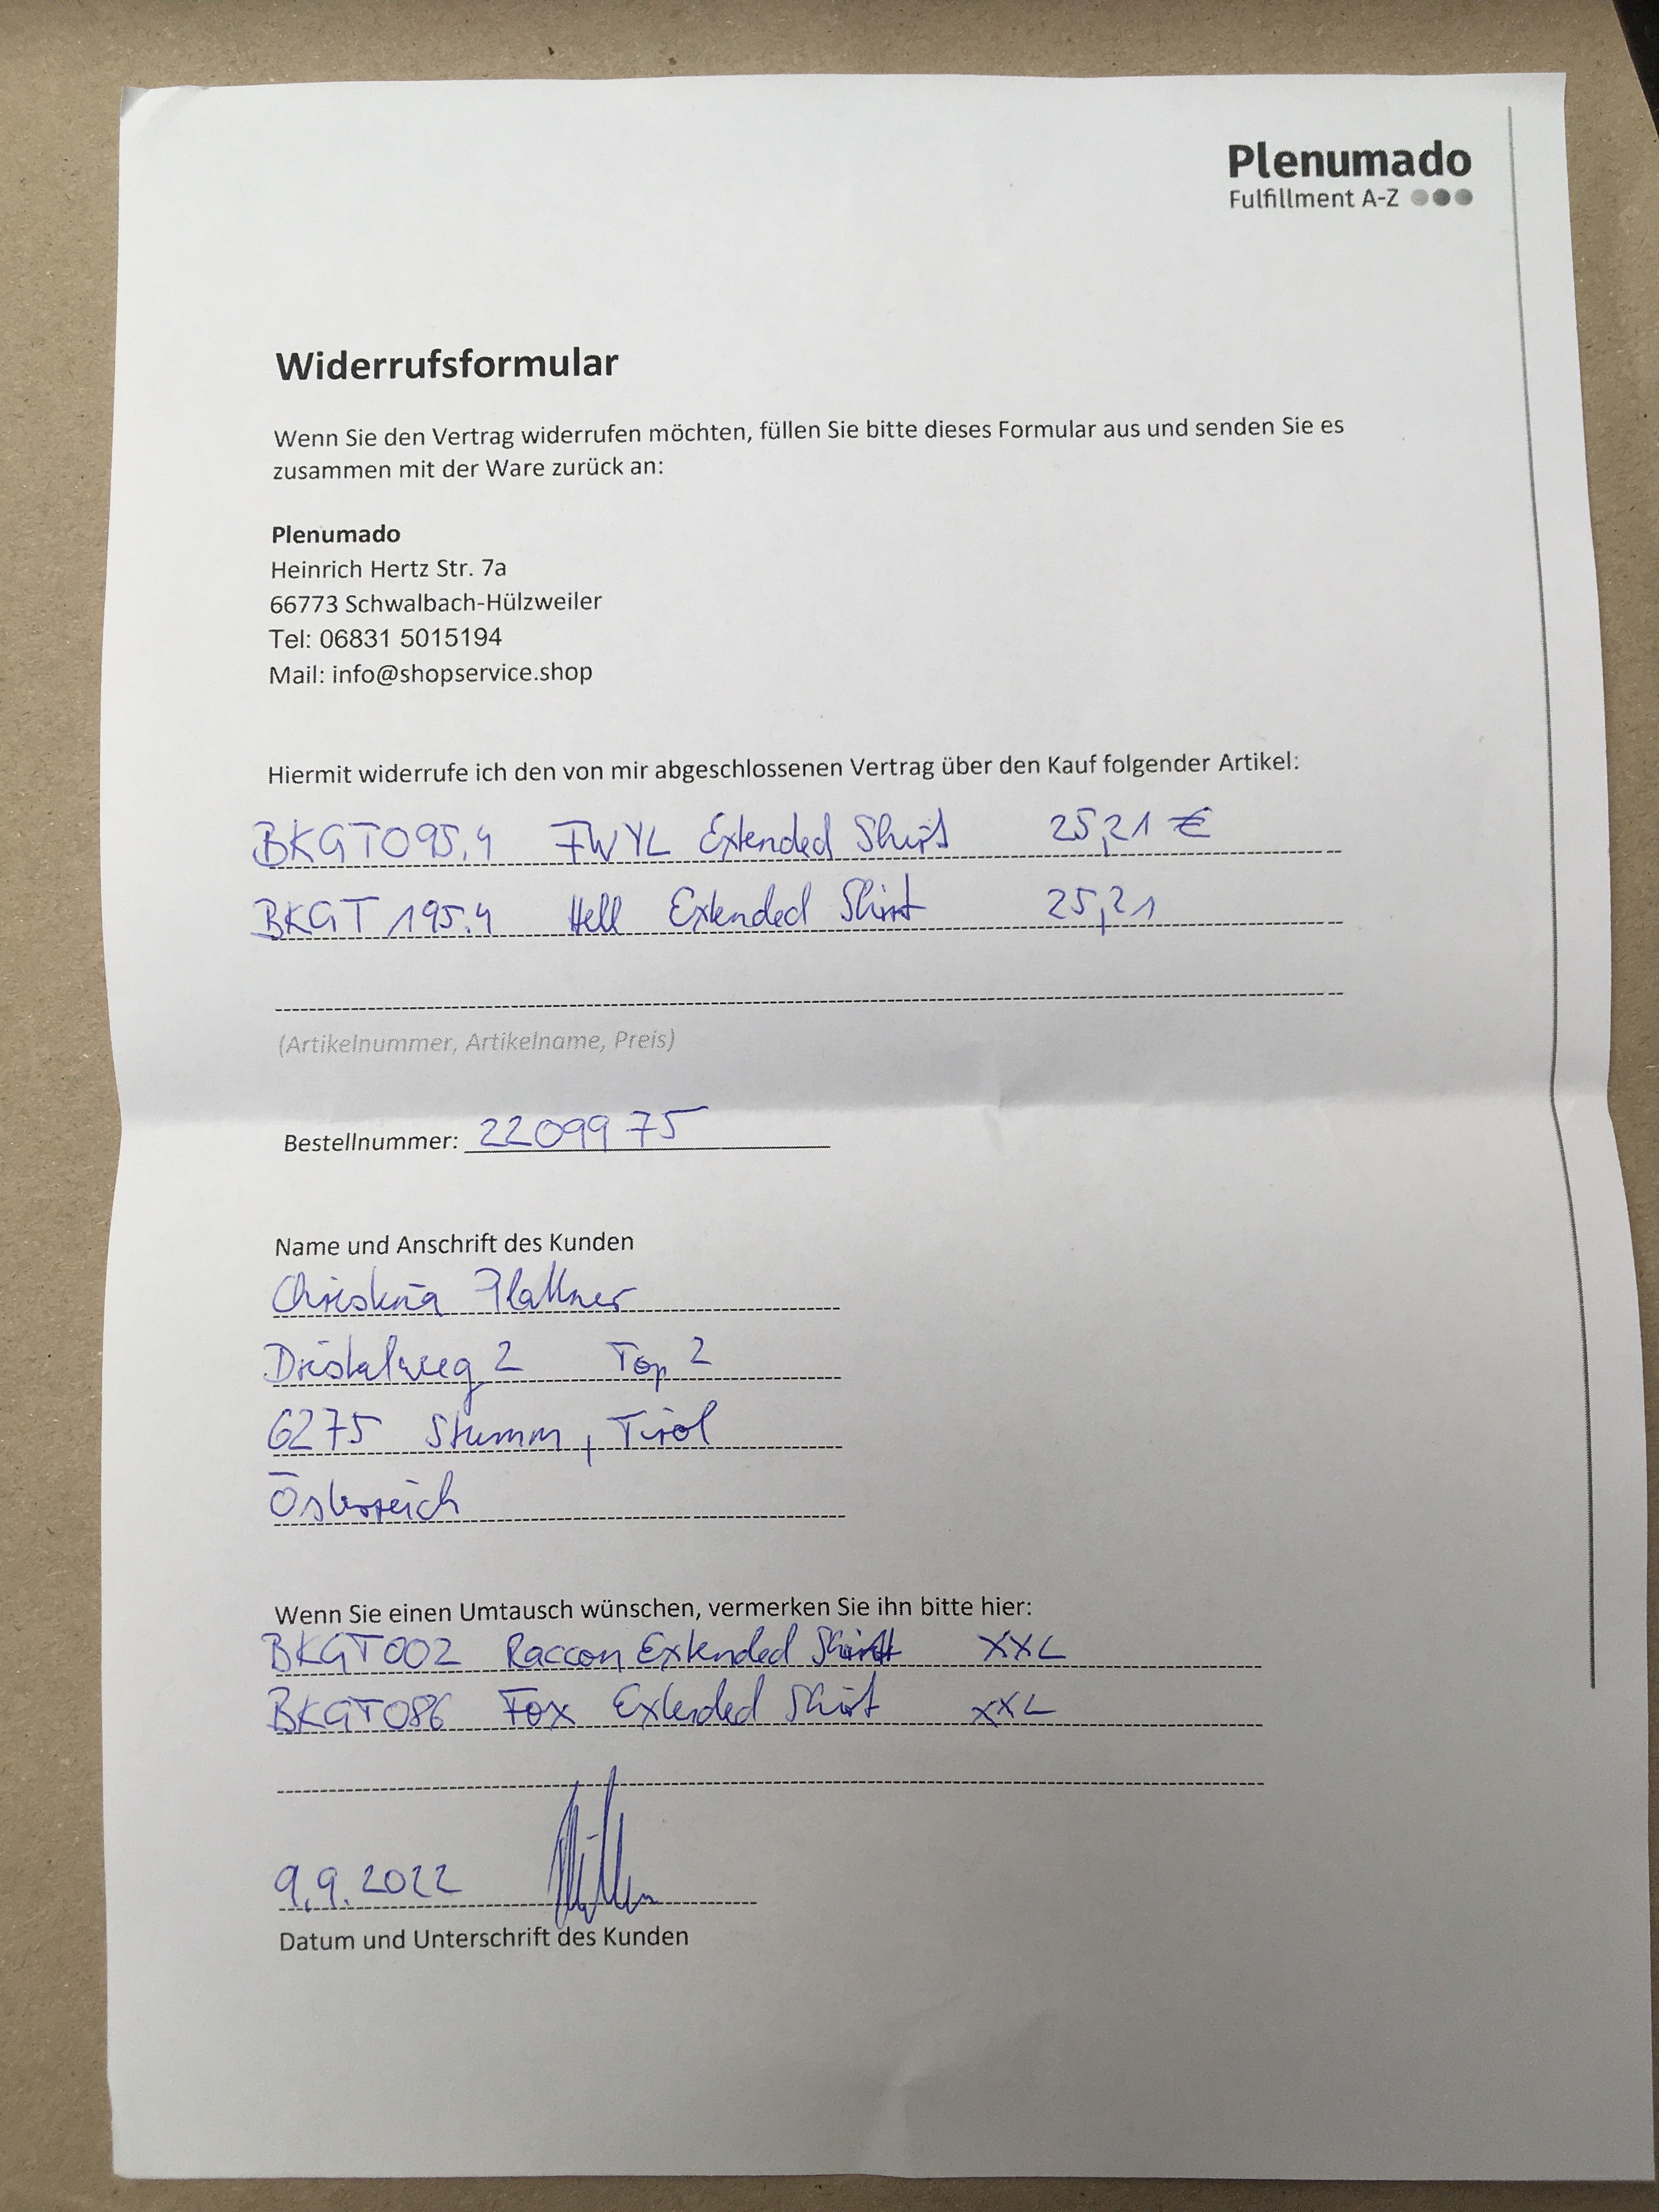 Plenumado
Fulfillment A-Z
Widerrufsformular
Wenn Sie den Vertrag widerrufen möchten, füllen Sie bitte dieses Formular aus und senden Sie es
zusammen mit der Ware zurück an:
Plenumado
Heinrich Hertz Str. 7a
66773 Schwalbach-Hülzweiler
Tel: 06831 5015194
Mail: info@shopservice.shop
Hiermit widerrufe ich den von mir abgeschlossenen Vertrag über den Kauf folgender Artikel:
BKGT095.4 FWYL Extended Shirt 25,21 €
BKGT195.4 Hell Extended Shirt 25,21
(Artikelnummer, Artikelname, Preis)
Bestellnummer: 2209975
Name und Anschrift des Kunden
Christina Plattner
2 Top 2
6275 Stumm, Tirol
Österreich
Wenn Sie einen Umtausch wünschen, vermerken Sie ihn bitte hier:
BKGT002 Raccon Extended Shirt XXL
BKGT086 Fox Extended Shirt XXL
9.9.2022
Datum und Unterschrift des Kunden